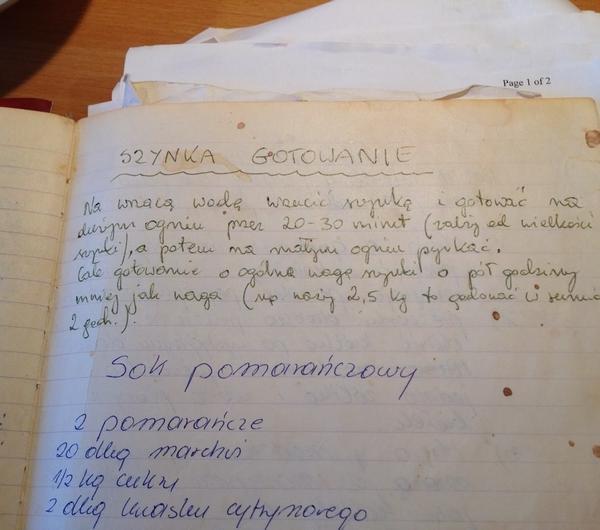 Page 1 of 2
SZYNKA GOTOWANIE
Na wrzącą wodę wrzucić szynkę i gotować na
dużym ogniu przez 20-30 minut (zależy od wielkości
szynki), a potem na małym ogniu pyrkać.
Całe gotowanie o ogólną wagę szynki o pół godziny
mniej jak waga (np waży 2,5 kg to gotować w sumie
2 godz.).
Sok pomarańczowy
2 pomarańcze
20 dkg marchwi
1/2 kg cukru
2 dkg kwasku cytrynowego